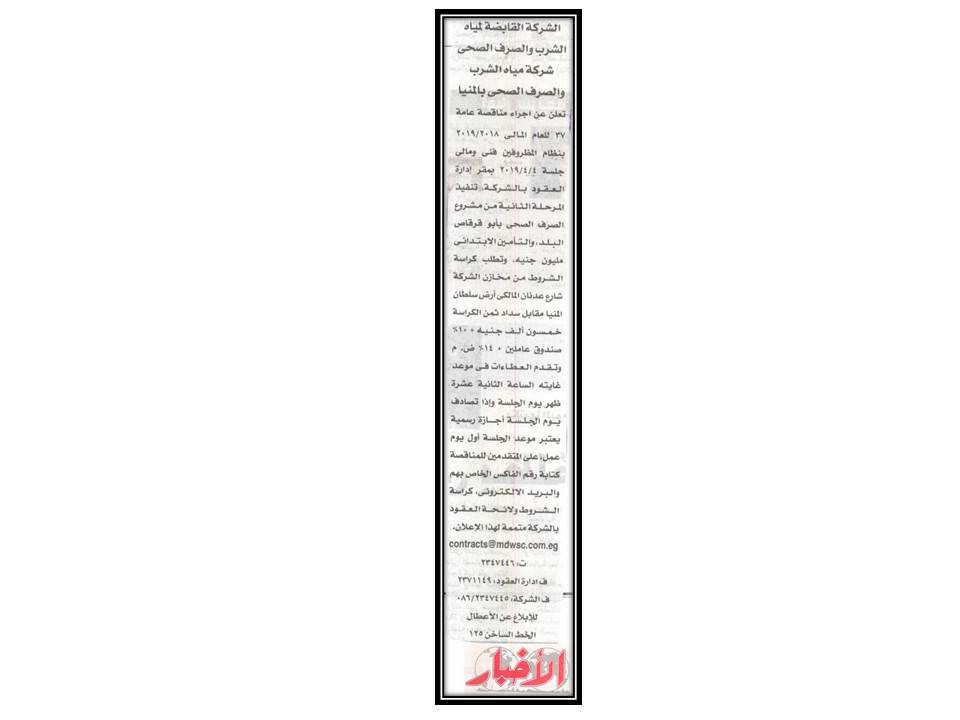 الشركة القابضة لمياه
الشرب والصرف الصحى
شركة مياه الشرب
والصرف الصحى بالمنيا
تعلن عن اجراء مناقصة عامة
٣٧ للعام المالى ٢٠١٩/٢٠١٨
بنظام المظروفين فنى ومالى
جلسة ٢٠١٩/٤/٤ بمقر إدارة
العقود بالشركة، تنفيذ
المرحلة الثانية من مشروع
الصرف الصحى بأبو قرقاص
البلد، والتأمين الابتدائى
مليون جنيه، وتطلب كراسة
الشروط من مخازن الشركة
شارع عدنان المالكى أرض سلطان
المنيا مقابل سداد ثمن الكراسة
خمسون ألف جنيه + ١٠٪
صندوق عاملين + ١٤٪ ض. م
وتقدم العطاءات فى موعد
غايته الساعة الثانية عشرة
ظهر يوم الجلسة وإذا تصادف
يوم الجلسة أجازة رسمية
يعتبر موعد الجلسة أول يوم
عمل، على المتقدمين للمناقصة
كتابة رقم الفاكس الخاص بهم
والبريد الالكترونى، كراسة
الشروط ولائحة العقود
بالشركة متممة لهذا الإعلان.
contracts@mdwsc.com.eg
ت: ٢٣٤٧٤٤٦
ف ادارة العقود: ٢٣٧١١٤٩
ف الشركة: ٠٨٦/٢٣٤٧٤٤٥
للإبلاغ عن الأعطال
الخط الساخن ١٢٥
الأخبار